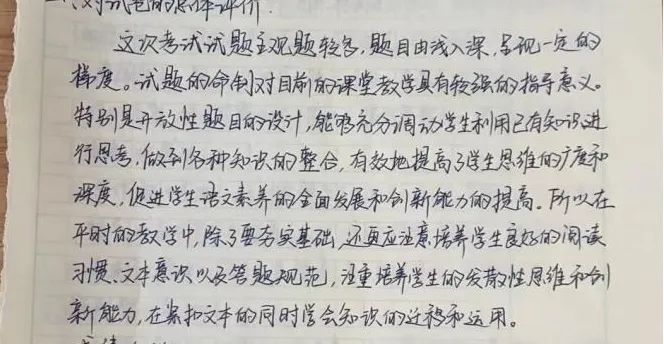 对试卷的总体评价.
这次考试试题主观题较多,题目由浅入深,呈现一定的
梯度。试题的命制对目前的课堂教学具有较强的指导意义。
特别是开放性题目的设计,能够充分调动学生利用已有知识进
行思考,做到各种知识的整合,有效地提高了学生思维的广度和
深度,促进学生语文素养的全面发展和创新能力的提高。所以在
平时的教学中,除了要夯实基础,还更应注意培养学生良好的阅读
习惯、文本意识以及答题规范,注重培养学生的发散性思维和创
新能力,在紧扣文本的同时学会知识的迁移和运用。